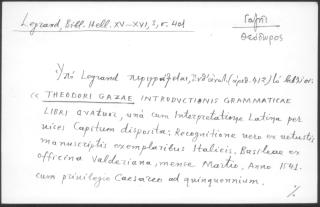 Legrand, Bibl. Hell. XV-XVI, 3, σ. 401
Γαζῆς
Θεόδωρος
Ὑπὸ Legrand περιγράφεται, (ἀριθ. 412) τὸ
« THEODORI GAZAE INTRODUCTIONIS GRAMMATICAE
LIBRI QVATUOR, unà cum Interpretatione Latina per
uices Capitum disposita; Recognitione uero ex uetustis
manuscriptis exemplaribus Italicis. Basileae ex
officina Valderiana, mense Martio, Anno 1541.
cum priuilegio Caesareo ad quinquennium.